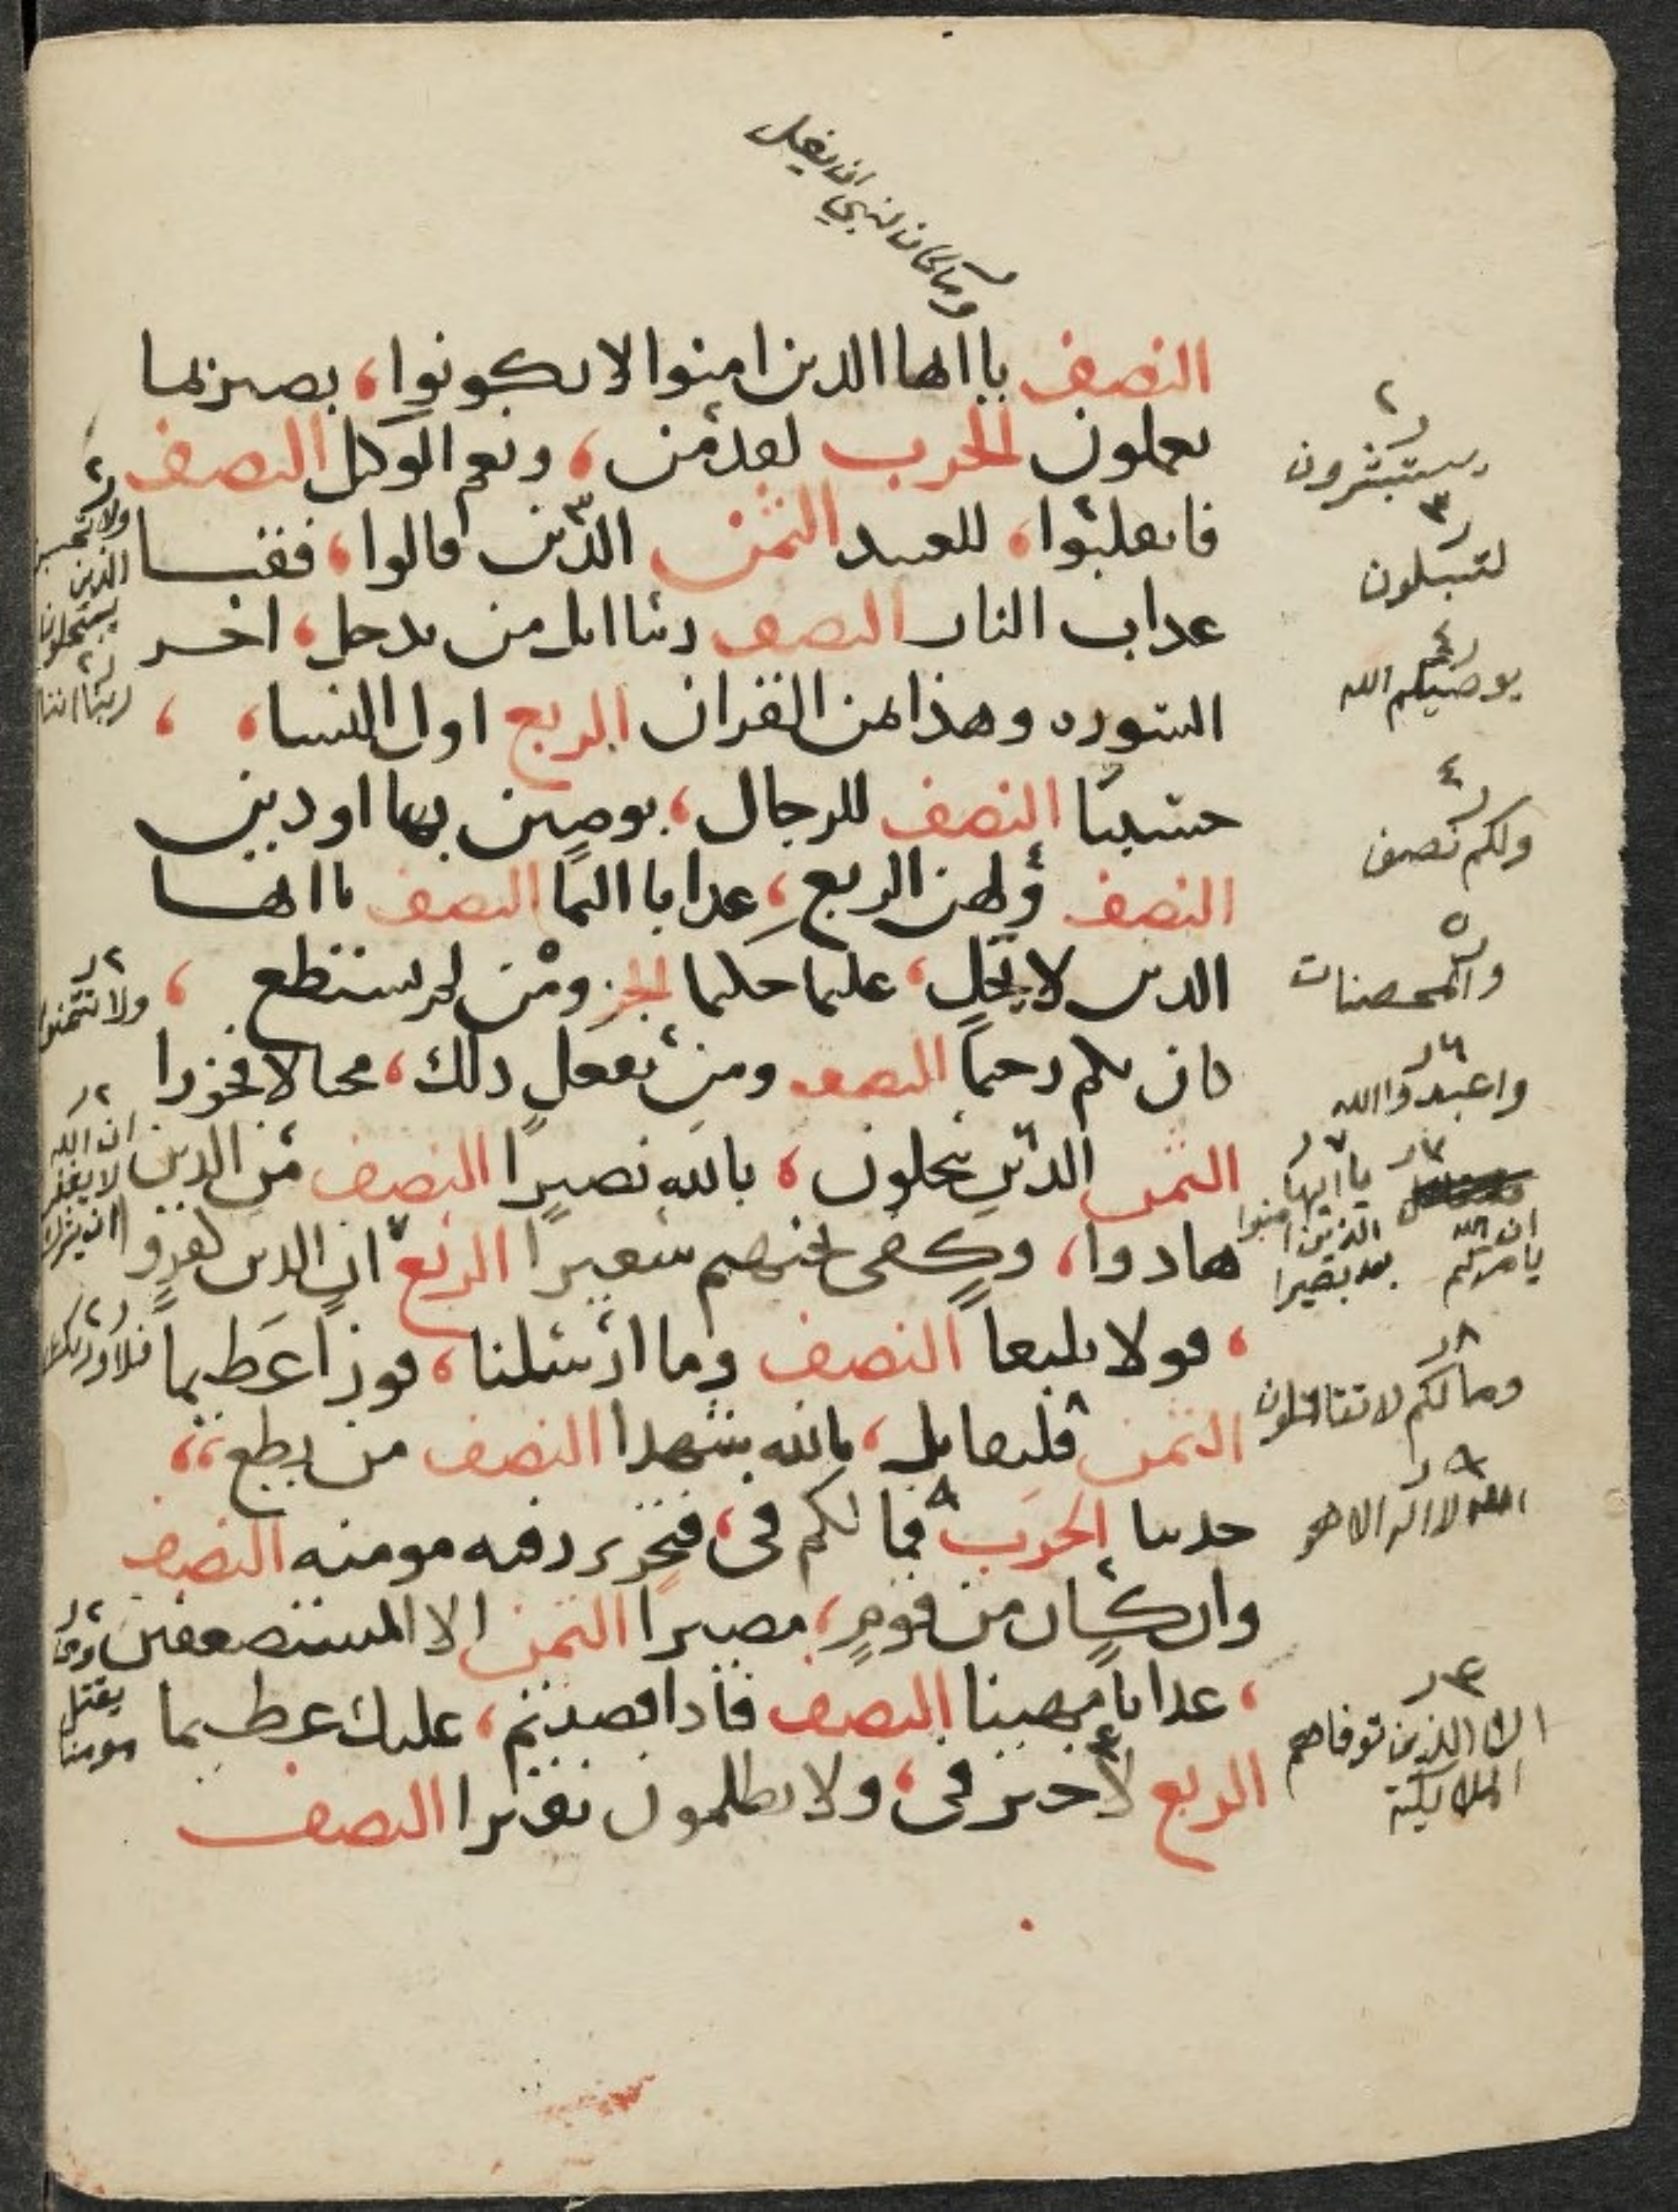 وما كان لنبي ان يغل
النصف ياايها الدين امنوا لا تكونوا، بصير بما
يعملون الحرب لقد من، ونعم الوكيل النصف
فانقلبوا، للعبيد الثمن الذين قالوا، فقنا
عداب النار النصف ربنا انك من تدخل، اخر
السوره وهذا من القران الربع اول النسا،
حسيبا النصف للرجال، يوصين بها او دين
النصف ولهن الربع، عدابا اليما النصف ياايها
الدين لا يحل، عليما حكيما الجز ومن لم يستطع،
كان بكم رحيما النصف ومن يفعل دلك، مختالا فخورا
الثمن الذين يبخلون، بالله نصيرا النصف من الدين
هادوا، وكفى بجهنم سعيرا الربع ان الدين كفرو
، قولا بليغا النصف وما ارسلنا، فوزا عظيما
الثمن فليقاتل، بالله شهدا النصف من يطع،
حديثا الحزب فما لكم فى، فتحرير رقبه مومنه النصف
وان كان من قوم، مصيرا الثمن الا المستضعفين
، عدابا مهينا النصف فاذا قضيتم، عليك عظيما
الربع لا خير فى، ولا يظلمون نقيرا النصف
يستبشرون
لتبلون
يوصيكم الله
ولكم نصف
والمحصنات
واعبدوا الله
ان الله يامركم
ياايها الذين امنوا
وما لكم لا تقاتلون
الله لا اله الا هو
ان الذين توفاهم
الملايكة
الذين
يبخلون
ربنا اننا
ولا تتمنوا
ان الله
لا يغفر
ان يشرك
فلا وربك
ومن
يقتل
مومنا